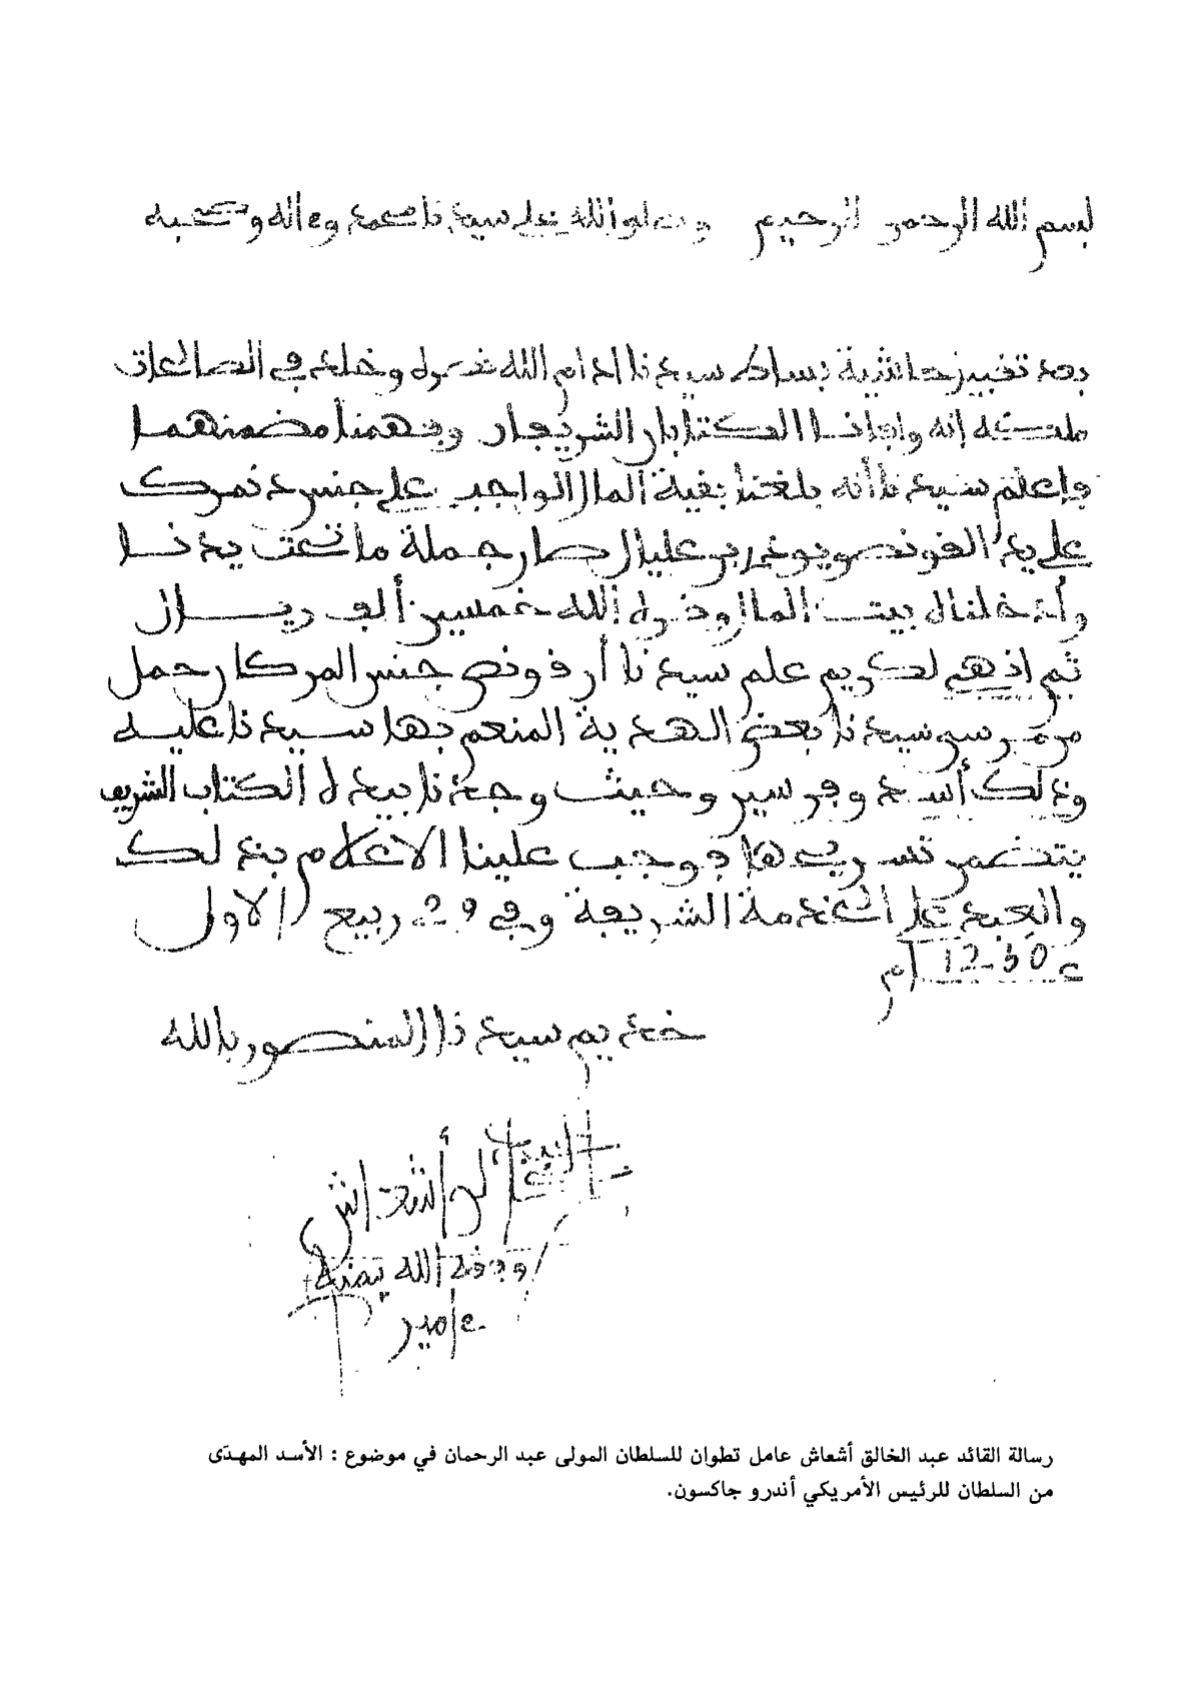 بسم الله الرحمن الرحيم وصلى الله على سيدنا محمد وءاله وصحبه
بعد تقبيل حاشية بساط سيدنا ادام الله نصره وخلد في الصالحات
إنه وافانا الكتابان الشريفان وفهمنا مضمنهما
فإعلم سيدنا أنه بلغنا بقية المال الواجب على جنس دنمرك
على يد القونصو ويوخذ بر عليال صار جملة ما تحت يدنا
وأدخلنا لبيت المال وفره الله خمسين ألف ريال
ثم اذهى لكريم علم سيدنا أن قونص جنس المركان حمل
من مرسى سيدنا بعض الهدية المنعم بها سيدنا عليه
وذلك أسد وفرسين وحيث وجدنا بيده الكتاب الشريف
يتضمن تسريحها فوجب علينا الاعلام بذلك
والعبد على الخدمة الشريفة وفي 29 ربيع الاول
عـ 1250 ام
خديم سيدنا المنصور بالله
عبد الخالق أشعاش
وفقه الله بمنه
ءامين
رسالة القائد عبد الخالق أشعاش عامل تطوان للسلطان المولى عبد الرحمان في موضوع : الأسد المهدّى
من السلطان للرئيس الأمريكي أندرو جاكسون.